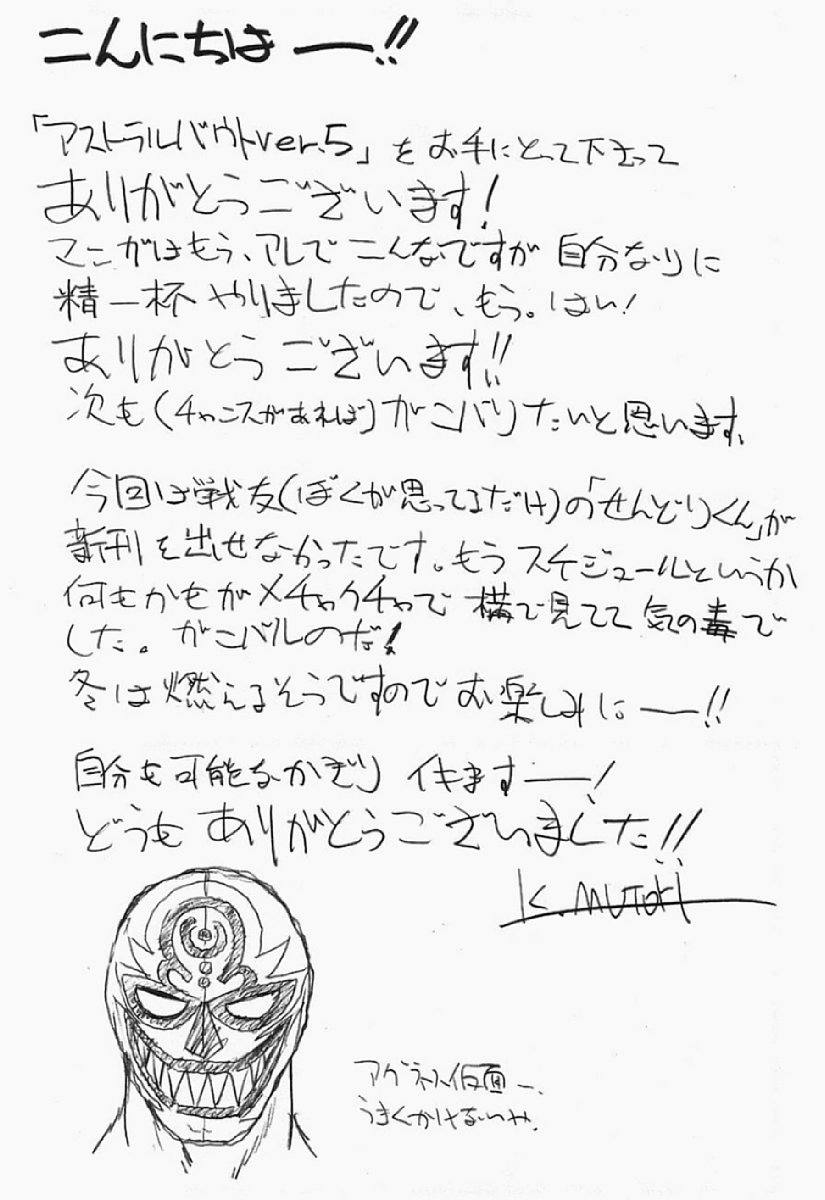 こんにちはー!!
「アストラルバウトver.5」をお手にとって下さって
ありがとうございます!
マンガはもう、アレでこんなですが 自分なりに
精一杯 やりましたので、もう。はい!
ありがとうございます!!
次も(チャンスがあれば)がンバりたいと思います。
今回は戦友(ぼくが思ってるだけ)の「せんどりくん」が
新刊を出せなかったです。もうスケジュールというか
何もかもがメチャクチャで 横で見てて 気の毒で
した。ガンバルのだ!
冬は燃えるそうですのでお楽しみにー!!
自分も可能なかぎり イキますー!
どうも ありがとうございました!!
K.MUTORI
アグネス仮面ー。
うまくかけないや。